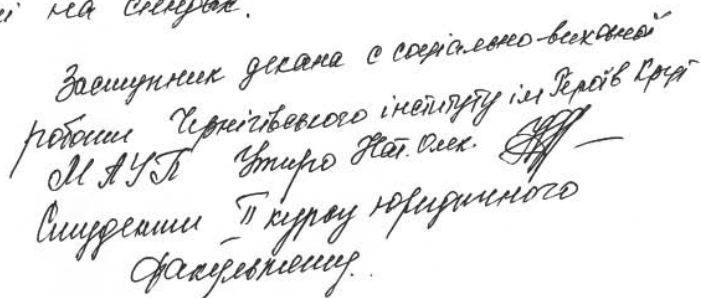 і на стендах.
Заступник декана с соціально-виховної
роботи Чернігівського інституту ім Героїв Крут
МАУП Нат. Олек.
Студенти II курсу юридичного
факультету.